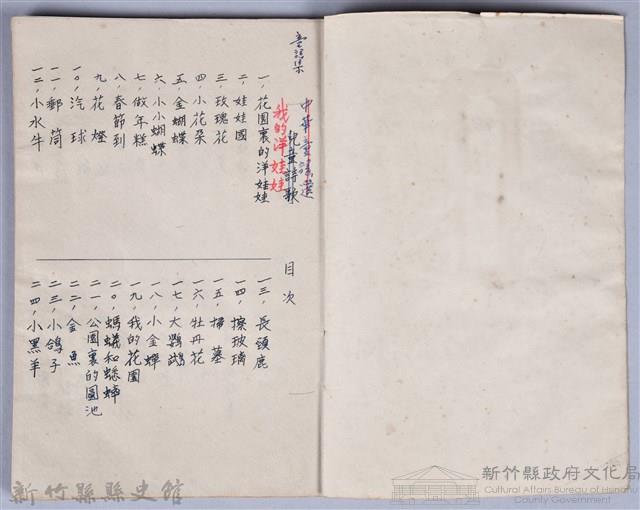 童謠集
中華童謠選
兒童詩歌
我的洋娃娃
一，花園裏的洋娃娃
二，娃娃國
三，玫瑰花
四，小花朵
五，金蝴蝶
六，小小蝴蝶
七，做年糕
八，春節到
九，花燈
一〇，汽球
一一，郵筒
一二，小水牛
目次
一三，長頸鹿
一四，擦玻璃
一五，掃墓
一六，牡丹花
一七，大鸚鵡
一八，小金蟬
一九，我的花園
二〇，螞蟻和蟋蟀
二一，公園裏的圓池
二二，金魚
二三，小鴿子
二四，小黑羊
新竹縣縣史館
新竹縣政府文化局
Cultural Affairs Bureau of Hsinchu
County Government